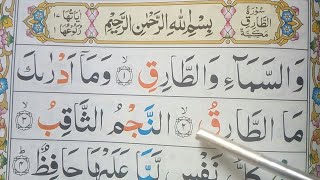 سُوْرَةُ الطَّارِقِ مَكِّيَّةٌ
بِسْمِ اللّٰهِ الرَّحْمٰنِ الرَّحِيْمِ
اٰيَاتُهَا ١٧ رُكُوْعُهَا ١
وَالسَّمَآءِ وَالطَّارِقِ ١ وَمَآ اَدْرٰىكَ
مَا الطَّارِقُ ٢ النَّجْمُ الثَّاقِبُ ٣
كُلُّ نَفْسٍ لَّمَّا عَلَيْهَا حَافِظٌ